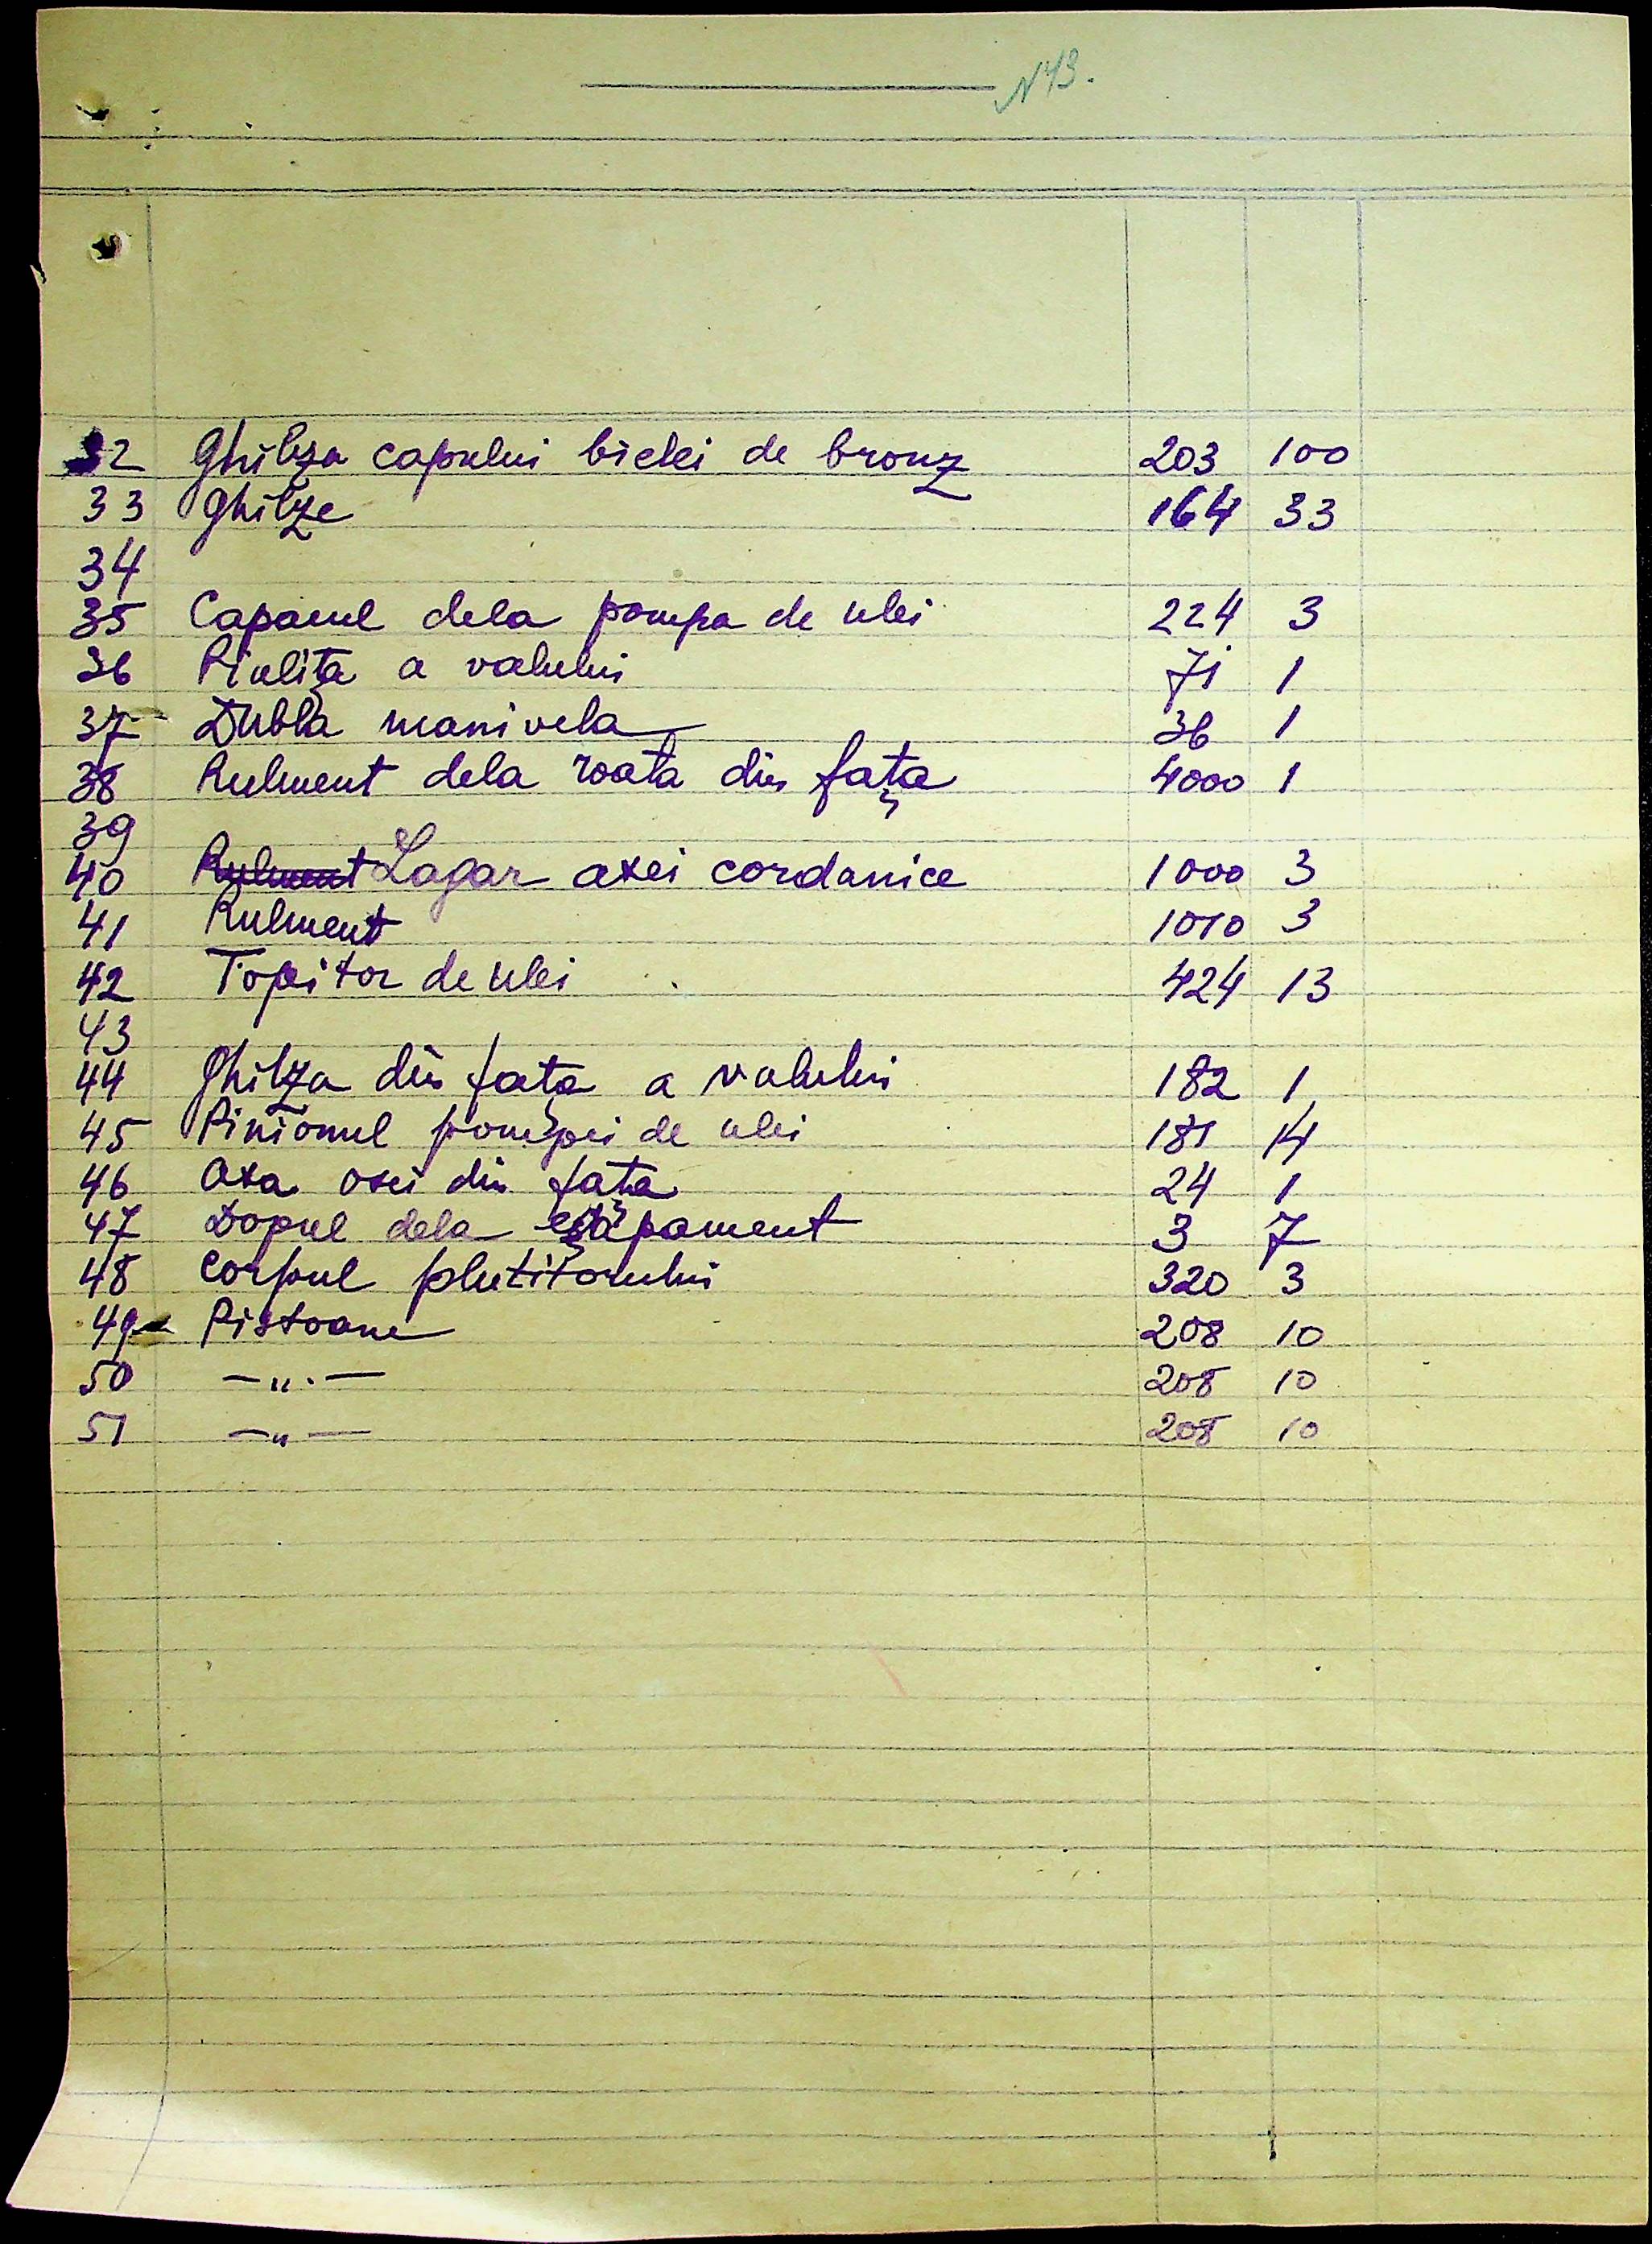 N 43.
32 Ghilza capului bielei de bronz 203 100
33 Ghilze 164 33
34
35 Capacul dela pompa de ulei 224 3
36 Piulița a valului 71 1
37 Dubla manivela 36 1
38 Rulment dela roata din fața 4000 1
39
40 Rulment Lagar axei cordanice 1000 3
41 Rulment 1010 3
42 Topitor de ulei 424 13
43
44 Ghilza din fața a valului 182 1
45 Pinionul pompei de ulei 181 14
46 Axa osei din fața 24 1
47 Dopul dela eșapament 3 7
48 Corpul plutitorului 320 3
49 Pistoane 208 10
50 —„.— 208 10
51 —„— 208 10